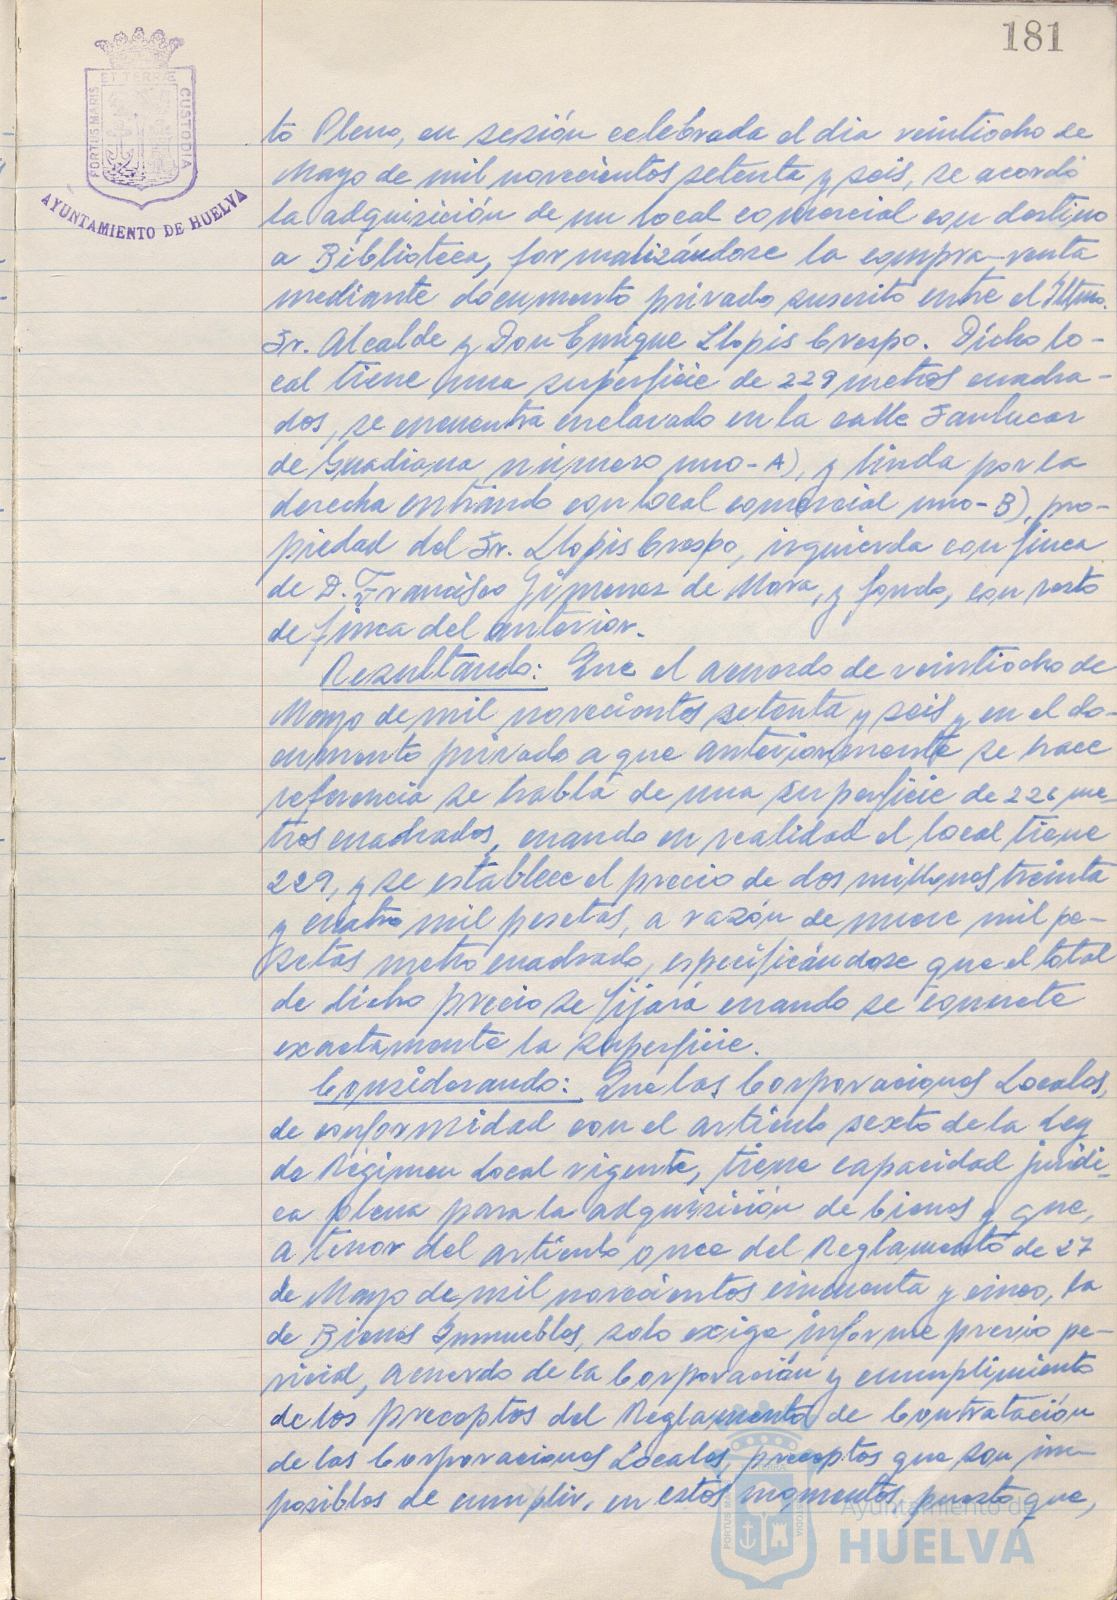 181
PORTUS MARIS ET TERRÆ CUSTODIA
AYUNTAMIENTO DE HUELVA
to Pleno, en sesión celebrada el dia veintiocho de
Mayo de mil novecientos setenta y seis, se acordó
la adquisición de un local comercial con destino
a Biblioteca, formalizándose la compra-venta
mediante documento privado suscrito entre el Iltmo.
Sr. Alcalde y Don Enrique Llopis Crespo. Dicho lo-
cal tiene una superficie de 229 metros cuadra-
dos, se encuentra enclavado en la calle Sanlucar
de Guadiana, número uno-A), y linda por la
derecha entrando con local comercial uno-B), pro-
piedad del Sr. Llopis Crespo, izquierda con finca
de D. Francisco Gimenez de Mora, y fondo, con resto
de finca del anterior.
Resultando: Que el acuerdo de veintiocho de
Mayo de mil novecientos setenta y seis y en el do-
cumento privado a que anteriormente se hace
referencia se habla de una superficie de 226 me-
tros cuadrados, cuando en realidad el local tiene
229, y se establece el precio de dos millones treinta
y cuatro mil pesetas, a razón de nueve mil pe-
setas metro cuadrado, especificándose que el total
de dicho precio se fijará cuando se concrete
exactamente la superficie.
Considerando: Que las Corporaciones Locales,
de conformidad con el artículo sexto de la Ley
de Régimen Local vigente, tiene capacidad juridi-
ca plena para la adquisición de bienes y que,
a tenor del artículo once del Reglamento de 27
de Mayo de mil novecientos cincuenta y cinco, la
de Bienes Inmuebles, solo exige informe previo pe-
ricial, acuerdo de la Corporación y cumplimiento
de los preceptos del Reglamento de Contratación
de las Corporaciones Locales, preceptos que son im-
posibles de cumplir, en estos momentos, puesto que,
Ayuntamiento de
HUELVA